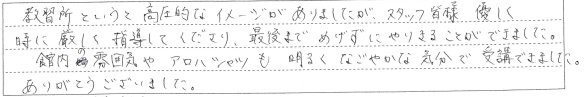 教習所というと高圧的なイメージがありましたが、スタッフ皆様 優しく
時に厳しく指導してくださり、最後までめげずにやりきることができました。
館内の雰囲気や アロハシャツも 明るく なごやかな気分で 受講できました。
ありがとうございました。